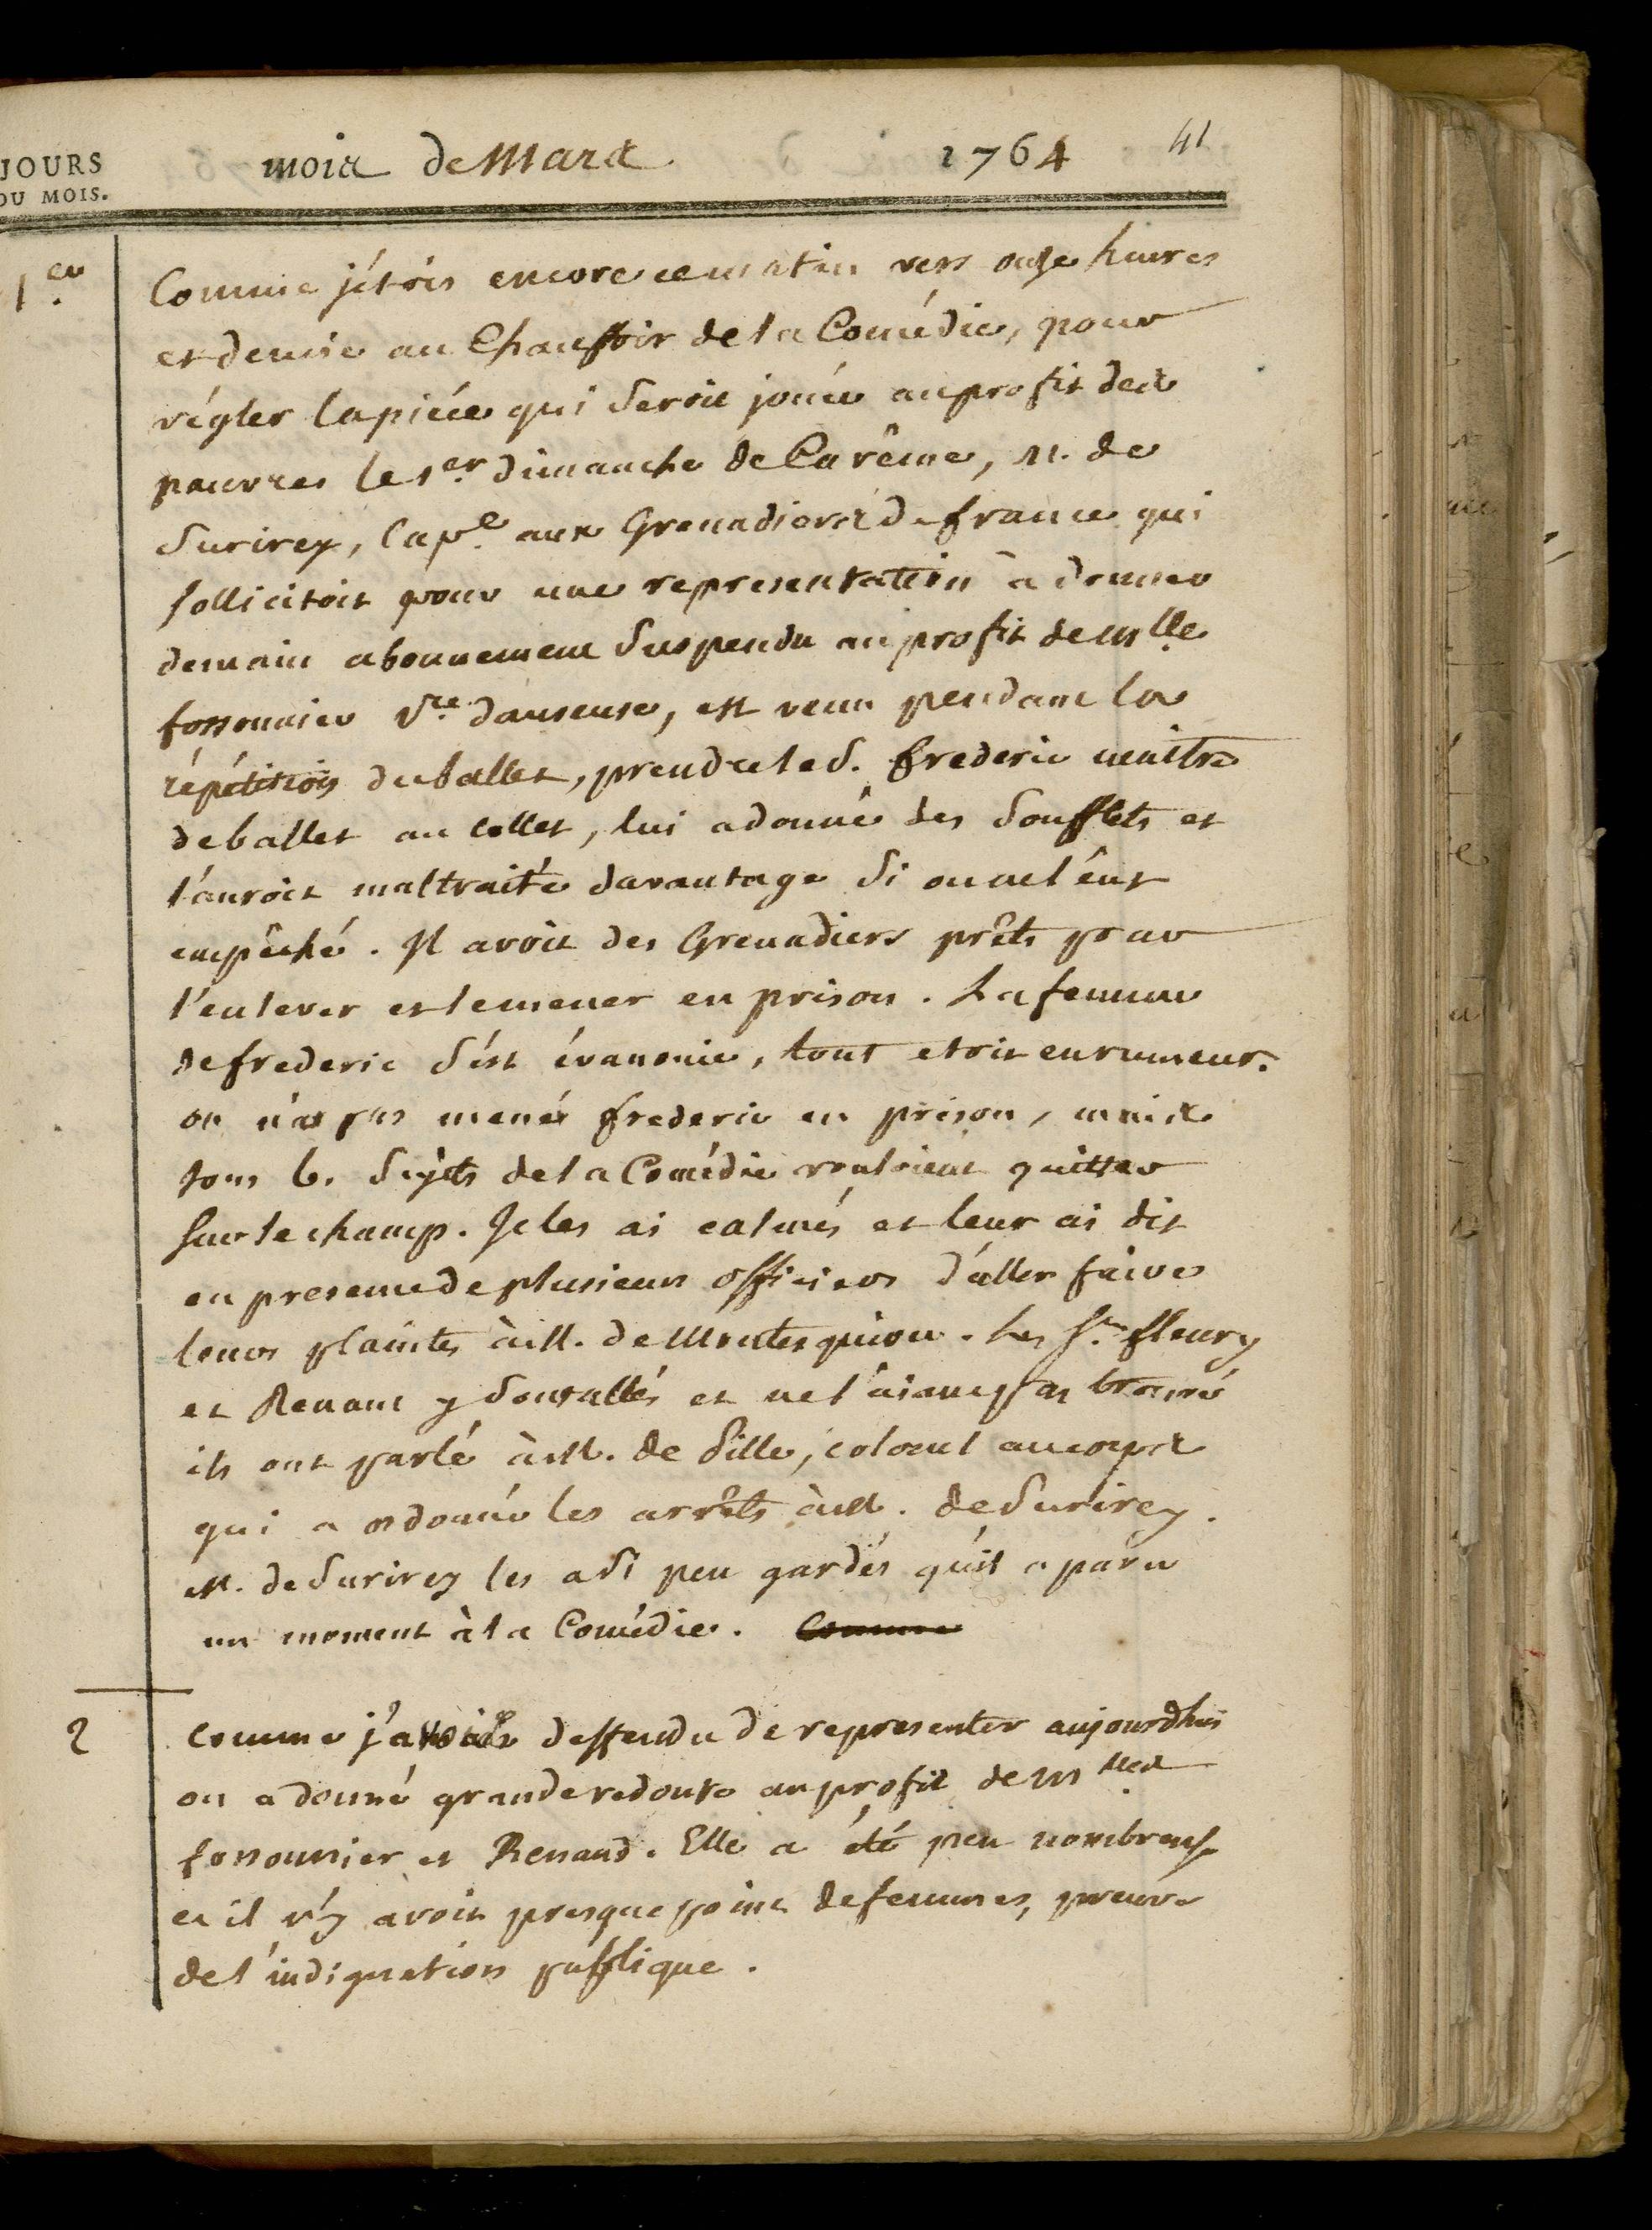 JOURS
DU MOIS.
mois de Mars 1764 41
1er. Comme j'étois encore ce matin vers onze heures
et demie au Chauffoir de la Comédie, pour
régler la piéce qui seroit jouée au profit des
pauvres le 1er. dimanche de Carême, M. de
Surirey, Cape. aux Grenadiers de france qui
sollicitoit pour une representation à donner
demain abonnement suspendu au profit de Mlle.
fossonnier 1re. danseuse, est venu pendant la
répétition du ballet, prendre le S. frederic maitre
de ballet au collet, lui a donné des soufflets et
l'auroit maltraité davantage si on ne l'eût
empêché. Il avoit des Grenadiers prêts pour
l'enlever et le mener en prison. La femme
de frederic s'est évanouie, tout etoit en rumeur.
on n'a pas mené frederic en prison, mais
tous les sujets de la Comédie vouloient quitter
sur le champ. Je les ai calmés et leur ai dit
en presence de plusieurs officiers d'aller faire
leurs plaintes à M. de Montesquiou. Les Srs. fleury
et Renaut y sont allés et ne l'aiant pas trouvé
ils ont parlé à M. de Sille, colonel au corps
qui a ordonné les arrêts à M. de Surirey.
M. de Surirey les a si peu gardés qu'il a paru
un moment à la Comédie. Comme
2 comme j'avois deffendu de representer aujourdhui
on a donné grande redoute au profit de Mlles.
fossounier et Renaud. Elle a été peu nombreuse
et il n'y avoit presque point de femmes, preuve
de l'indignation publique.